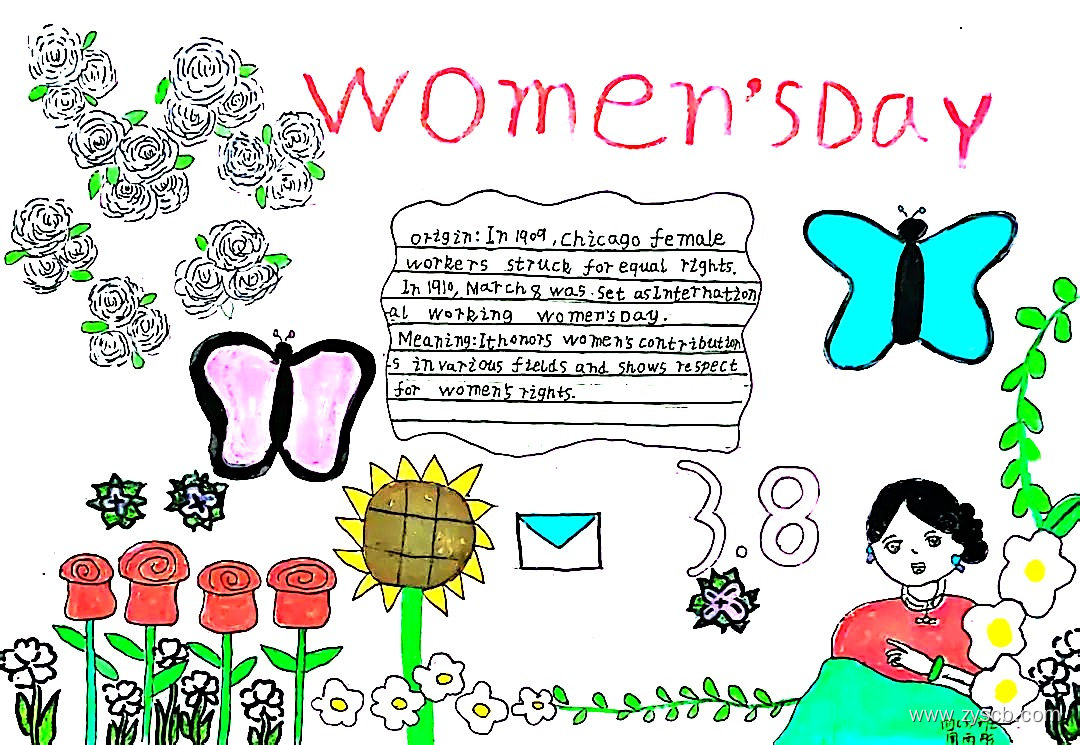 Women's Day
origin: In 1909, Chicago female
workers struck for equal rights.
In 1910, March 8 was. set as Internation
al working women's Day.
Meaning: It honors women's contribution
-s in various fields and shows respect
for women's rights.
3.8
www.zyscb.com